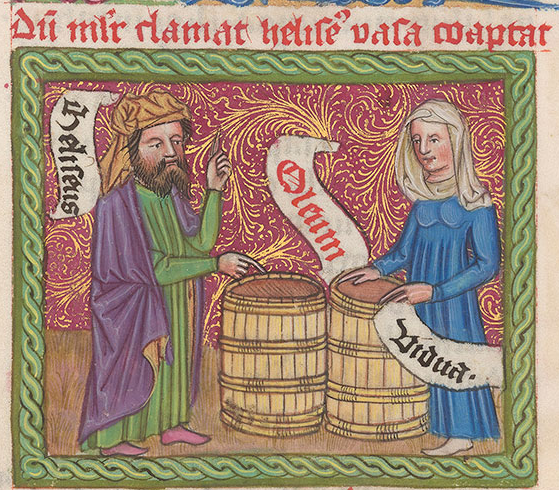 Dū mľr clamat heliseꝰ vasa coaptat
heliseus
Oleum
Vidua.